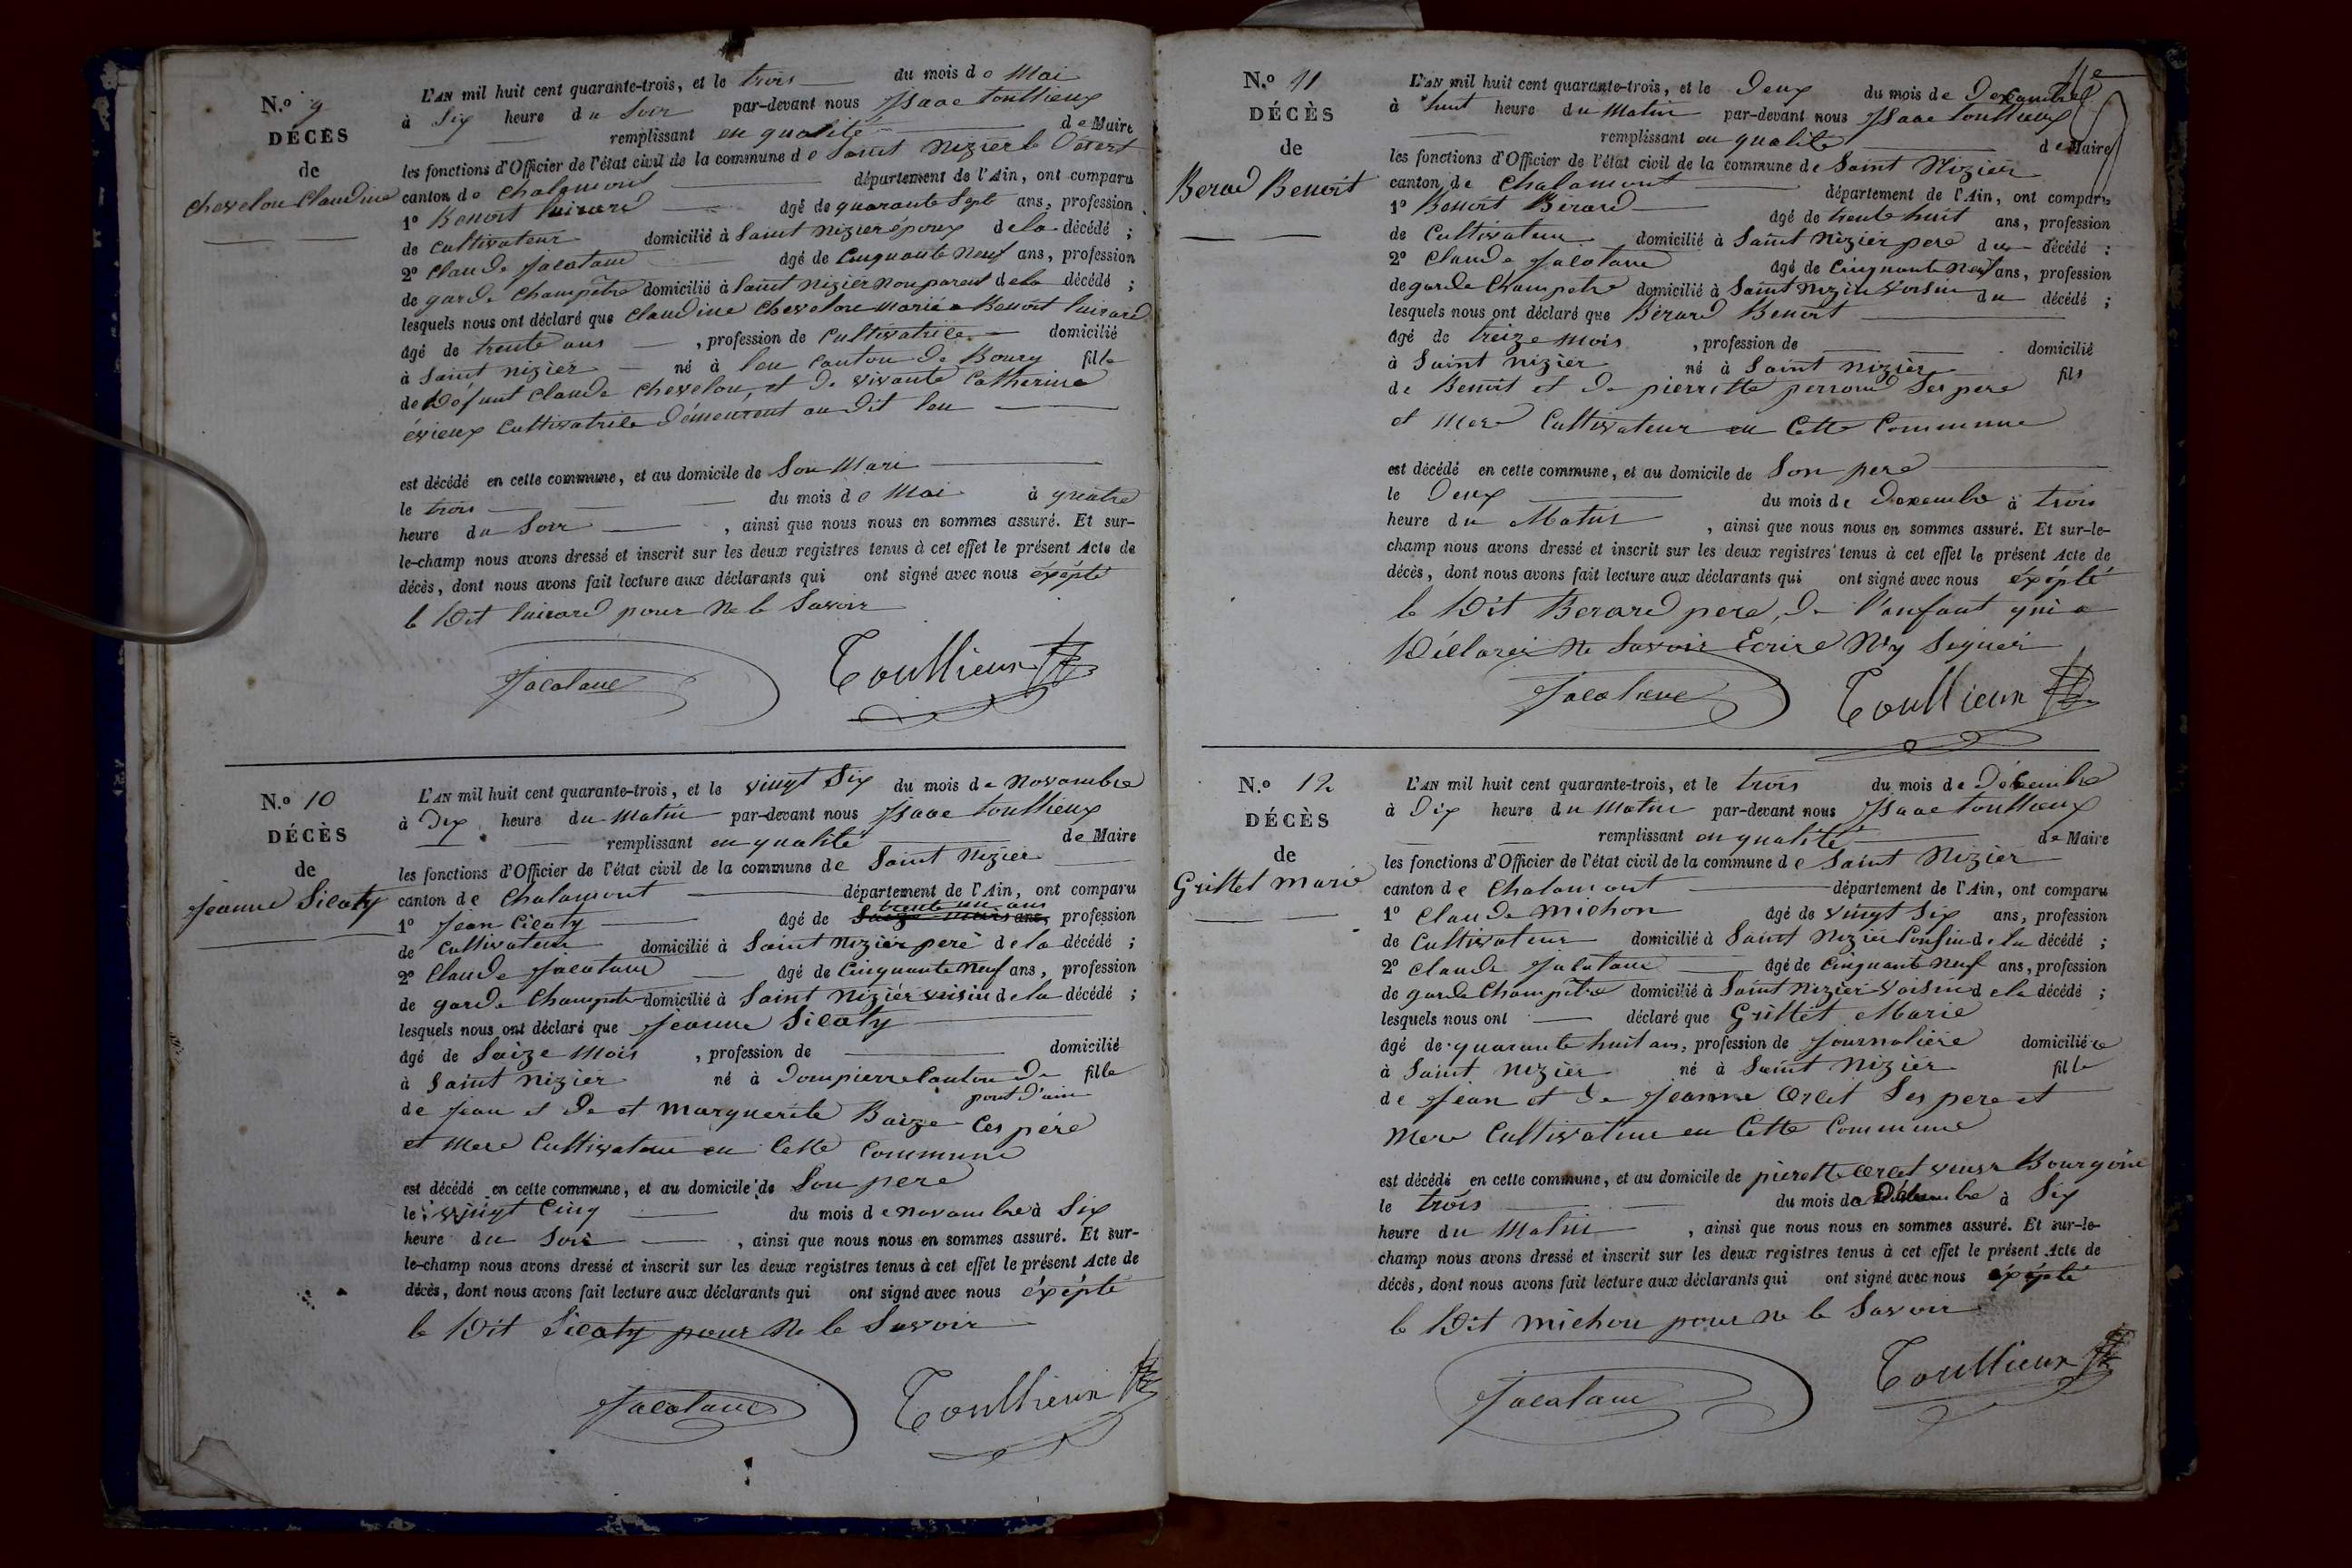 N.o 9
DÉCÈS
de
Chevelou Claudine
L'AN mil huit cent quarante-trois, et le trois du mois de Mai
à Six heure du Soir par-devant nous Isaac Toullieux
remplissant en qualité de Maire
les fonctions d'Officier de l'état civil de la commune de Saint Nizier le Désert
canton de Chalamont département de l'Ain, ont comparu
1o Benoit âgé de quarante Sept ans, profession
de Cultivateur domicilié à Saint Nizier époux de la décédé ;
2o Claude Jacotane âgé de Cinquante Neuf ans, profession
de garde Champêtre domicilié à Saint Nizier non parent de la décédé ;
lesquels nous ont déclaré que Claudine Chevelou mariée a Benoit
âgé de trente ans , profession de Cultivatrice domicilié
à Saint Nizier né à leu canton de Bourg fille
de Défunt Claude Chevelou, et de vivante Catherine
évieux Cultivatrice Démeurent au dit leu
est décédé en cette commune, et au domicile de Son Mari
le trois du mois de Mai à quatre
heure du Soir , ainsi que nous nous en sommes assuré. Et sur-
le-champ nous avons dressé et inscrit sur les deux registres tenus à cet effet le présent Acte de
décès, dont nous avons fait lecture aux déclarants qui ont signé avec nous éxépté
le Dit pour Ne le Savoir
Jacotane Toullieux
N.o 10
DÉCÈS
de
Jeanne Sicaty
L'AN mil huit cent quarante-trois, et le vingt Six du mois de Novambre
à Dix heure du Matin par-devant nous Isaac Toullieux
remplissant en qualité de Maire
les fonctions d'Officier de l'état civil de la commune de Saint Nizier
canton de Chalamont département de l'Ain, ont comparu
1o Jean Cicaty âgé de Saize mois ans, trente un ans profession
de Cultivateur domicilié à Saint Nizier peré de la décédé ;
2o Claude Jacotane âgé de Cinquante Neuf ans, profession
de garde Champetre domicilié à Saint Nizier voisin de la décédé ;
lesquels nous ont déclaré que Jeanne Sicaty
âgé de Saize Mois , profession de domicilié
à Saint Nizier né à Dompierre Canton de fille
pont d'ain
de Jean et de et Marguerite Baize Ces péré
et Mere Cultivateur en Cette Commune
est décédé en cette commune, et au domicile de Son pere
le vingt Cinq du mois de novambre à Six
heure du Soir , ainsi que nous nous en sommes assuré. Et sur-
le-champ nous avons dressé et inscrit sur les deux registres tenus à cet effet le présent Acte de
décès, dont nous avons fait lecture aux déclarants qui ont signé avec nous éxépté
le Dit Sicaty pour Ne le Savoir
Jacotane Toullieux
11e
N.o 11
DÉCÈS
de
Berard Benoit
L'AN mil huit cent quarante-trois, et le Deux du mois de Dexambre
à huit heure du Matin par-devant nous Isaac Toullieux
remplissant en qualité de Maire
les fonctions d'Officier de l'état civil de la commune de Saint Nizier
canton de Chalamont département de l'Ain, ont comparu
1o Benoit Bérard âgé de trente huit ans, profession
de Cultivateur domicilié à Saint Nizier pere du décédé ;
2o Claude Jacotane âgé de Cinquante Neuf ans, profession
de garde Champetre domicilié à Saint Nizier voisin du décédé ;
lesquels nous ont déclaré que Bérard Benoit
âgé de treize mois , profession de domicilié
à Saint Nizier né à Saint Nizier fils
de Benoit et de pierrette perroud Ses pere
et Mere Cultivateur en Cette Commune
est décédé en cette commune, et au domicile de Son pere
le Deux du mois de Dexembre à trois
heure du Matin , ainsi que nous nous en sommes assuré. Et sur-le-
champ nous avons dressé et inscrit sur les deux registres tenus à cet effet le présent Acte de
décès, dont nous avons fait lecture aux déclarants qui ont signé avec nous éxépté
le Dit Berard pere, de l'anfant qui a
Déclarer Ne Savoir Ecrire Ny Signer
Jacotane Toullieux
N.o 12
DÉCÈS
de
Grillet Marie
L'AN mil huit cent quarante-trois, et le trois du mois de Décembre
à Dix heure du Matin par-devant nous Isaac Toullieux
remplissant en qualité de Maire
les fonctions d'Officier de l'état civil de la commune de Saint Nizier
canton de Chalamont département de l'Ain, ont comparu
1o Claude Michon âgé de vingt Six ans, profession
de Cultivateur domicilié à Saint Nizier Cousin de la décédé ;
2o Claude Jacotane âgé de Cinquante Neuf ans, profession
de garde Champêtre domicilié à Saint Nizier Voisin de la décédé ;
lesquels nous ont déclaré que Grillet Marie
âgé de quarante huit ans, profession de Journaliere domiciliée
à Saint Nizier né à Saint Nizier fille
de Jean et de Jeanne Orcet Ses pere et
Mere Cultivateur en Cette Commune
est décédé en cette commune, et au domicile de pierette Orcet veuve Bourgoin
le trois du mois de Décembre à Six
heure du Matin , ainsi que nous nous en sommes assuré. Et sur-le-
champ nous avons dressé et inscrit sur les deux registres tenus à cet effet le présent Acte de
décès, dont nous avons fait lecture aux déclarants qui ont signé avec nous éxépté
le Dit Michon pour ne le Savoir
Jacotane Toullieux